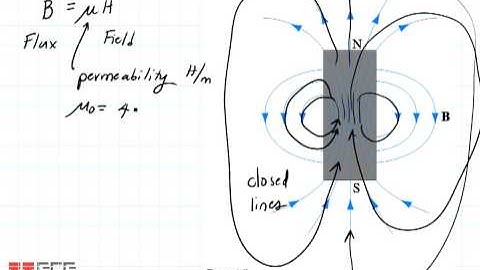 B = μH
Flux Field
permeability H/m
μ₀ = 4·
N
B
S
closed
lines